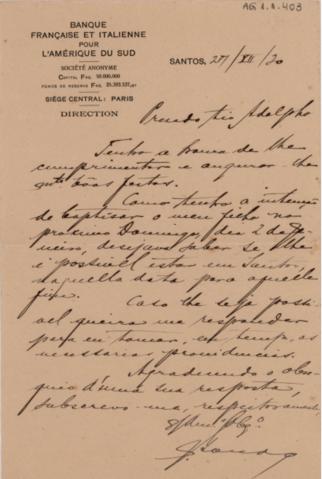 AG 1.1.403
BANQUE
FRANÇAISE ET ITALIENNE
POUR
L'AMÉRIQUE DU SUD
SOCIÉTÉ ANONYME
CAPITAL FRS. 50.000.000
FONDS DE RESERVE FRS.
SIÈGE CENTRAL: PARIS
DIRECTION
SANTOS, 27/XII/20
Presado tio Adolpho
Tenho a honra de lhe
cumprimentar e augurar-lhe
mtas bôas festas.
Como tenho a intenção
de baptisar o meu filho no
proximo Domingo, dia 2 de Ja-
neiro, desejava saber se lhe
é possivel estar em Santos,
naquella data para aquelle
fim.
Caso lhe seja possi-
vel queira me responder
para eu tomar, em tempo, as
necessarias providencias.
Agradecendo o obse-
quio d'uma sua resposta,
subscrevo-me, respeitosamente,